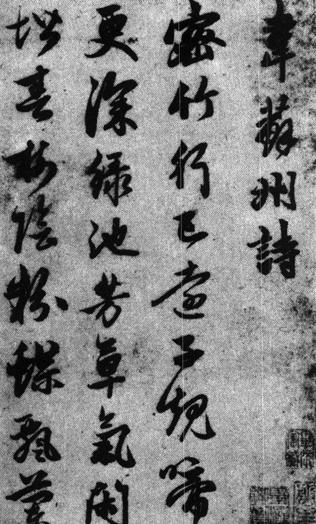 韋蘇州詩
密竹行已遠子規啼
更深綠池芳草氣閑
堦春樹陰粉蝶飄蘭